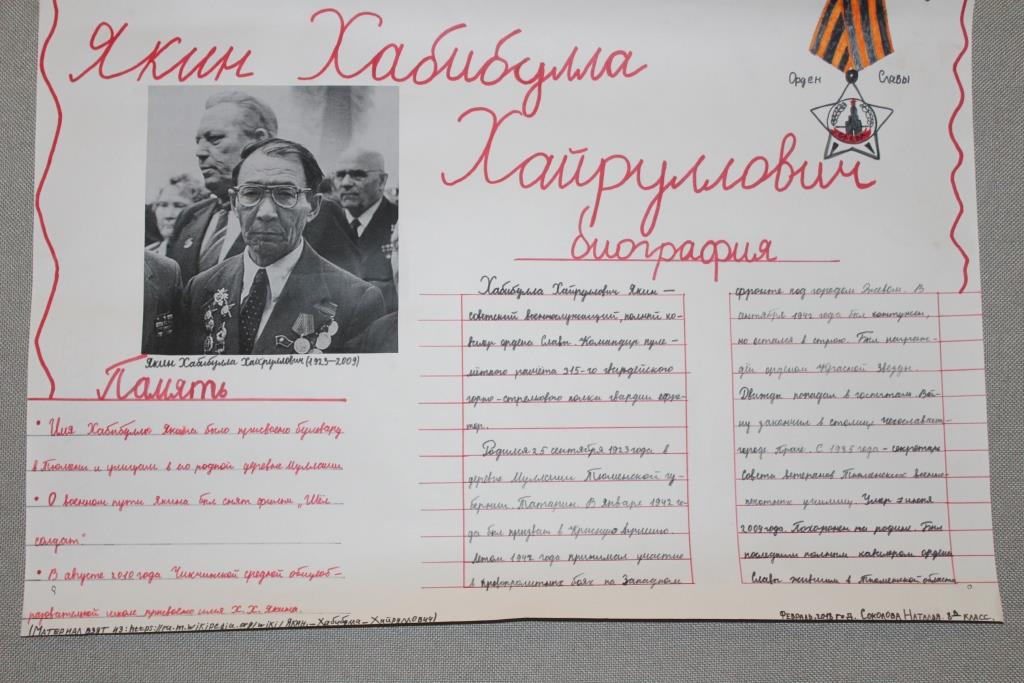 Якин Хабибулла
Хайруллович
Орден Славы
биография
Якин Хабибулла Хайруллович (1923-2009)
Память
• Имя Хабибуллы Якина было присвоено бульвару
в Тюмени и улицам в его родной деревне Муллаши
• О военном пути Якина был снят фильм „Шёл
солдат".
• В августе 2010 года Чикчинской средной общеоб-
разовательной школе присвоено имя Х. Х. Якина.
(Материал взят из: https://ru.m.wikipedia.org/wiki/Якин,_Хабибулла_Хайруллович)
Хабибулла Хайруллович Якин —
советский военнослужащий, полный ка-
валер ордена Славы. Командир пуле-
мётного расчёта 315-го гвардейского
горно-стрелкового полка гвардии ефрей-
тор.
Родился 25 сентября 1923 года в
деревне Муллаши Тюменской гу-
бернии. Татарин. В январе 1942 го-
да был призван в Красную армию.
Летом 1942 года принимал участие
в кровопролитных боях на Западном
фронте под городом Ржевом. В
сентября 1942 года был контужен,
но остался в строю. Был награж-
дён орденом Красной Звезды.
Дважды попадал в госпиталь. Вой-
ну закончил в столице Чехословакии-
городе Праге. С 1985 года - секретарь
совета ветеранов Тюменских военно-
пехотных училищ. Умер 7 июня
2009 года. Похоронен на родине. Был
последним полным кавалером ордена
Славы жившим в Тюменской области
Февраль, 2018 год. Соколова Наталья. 8д класс.